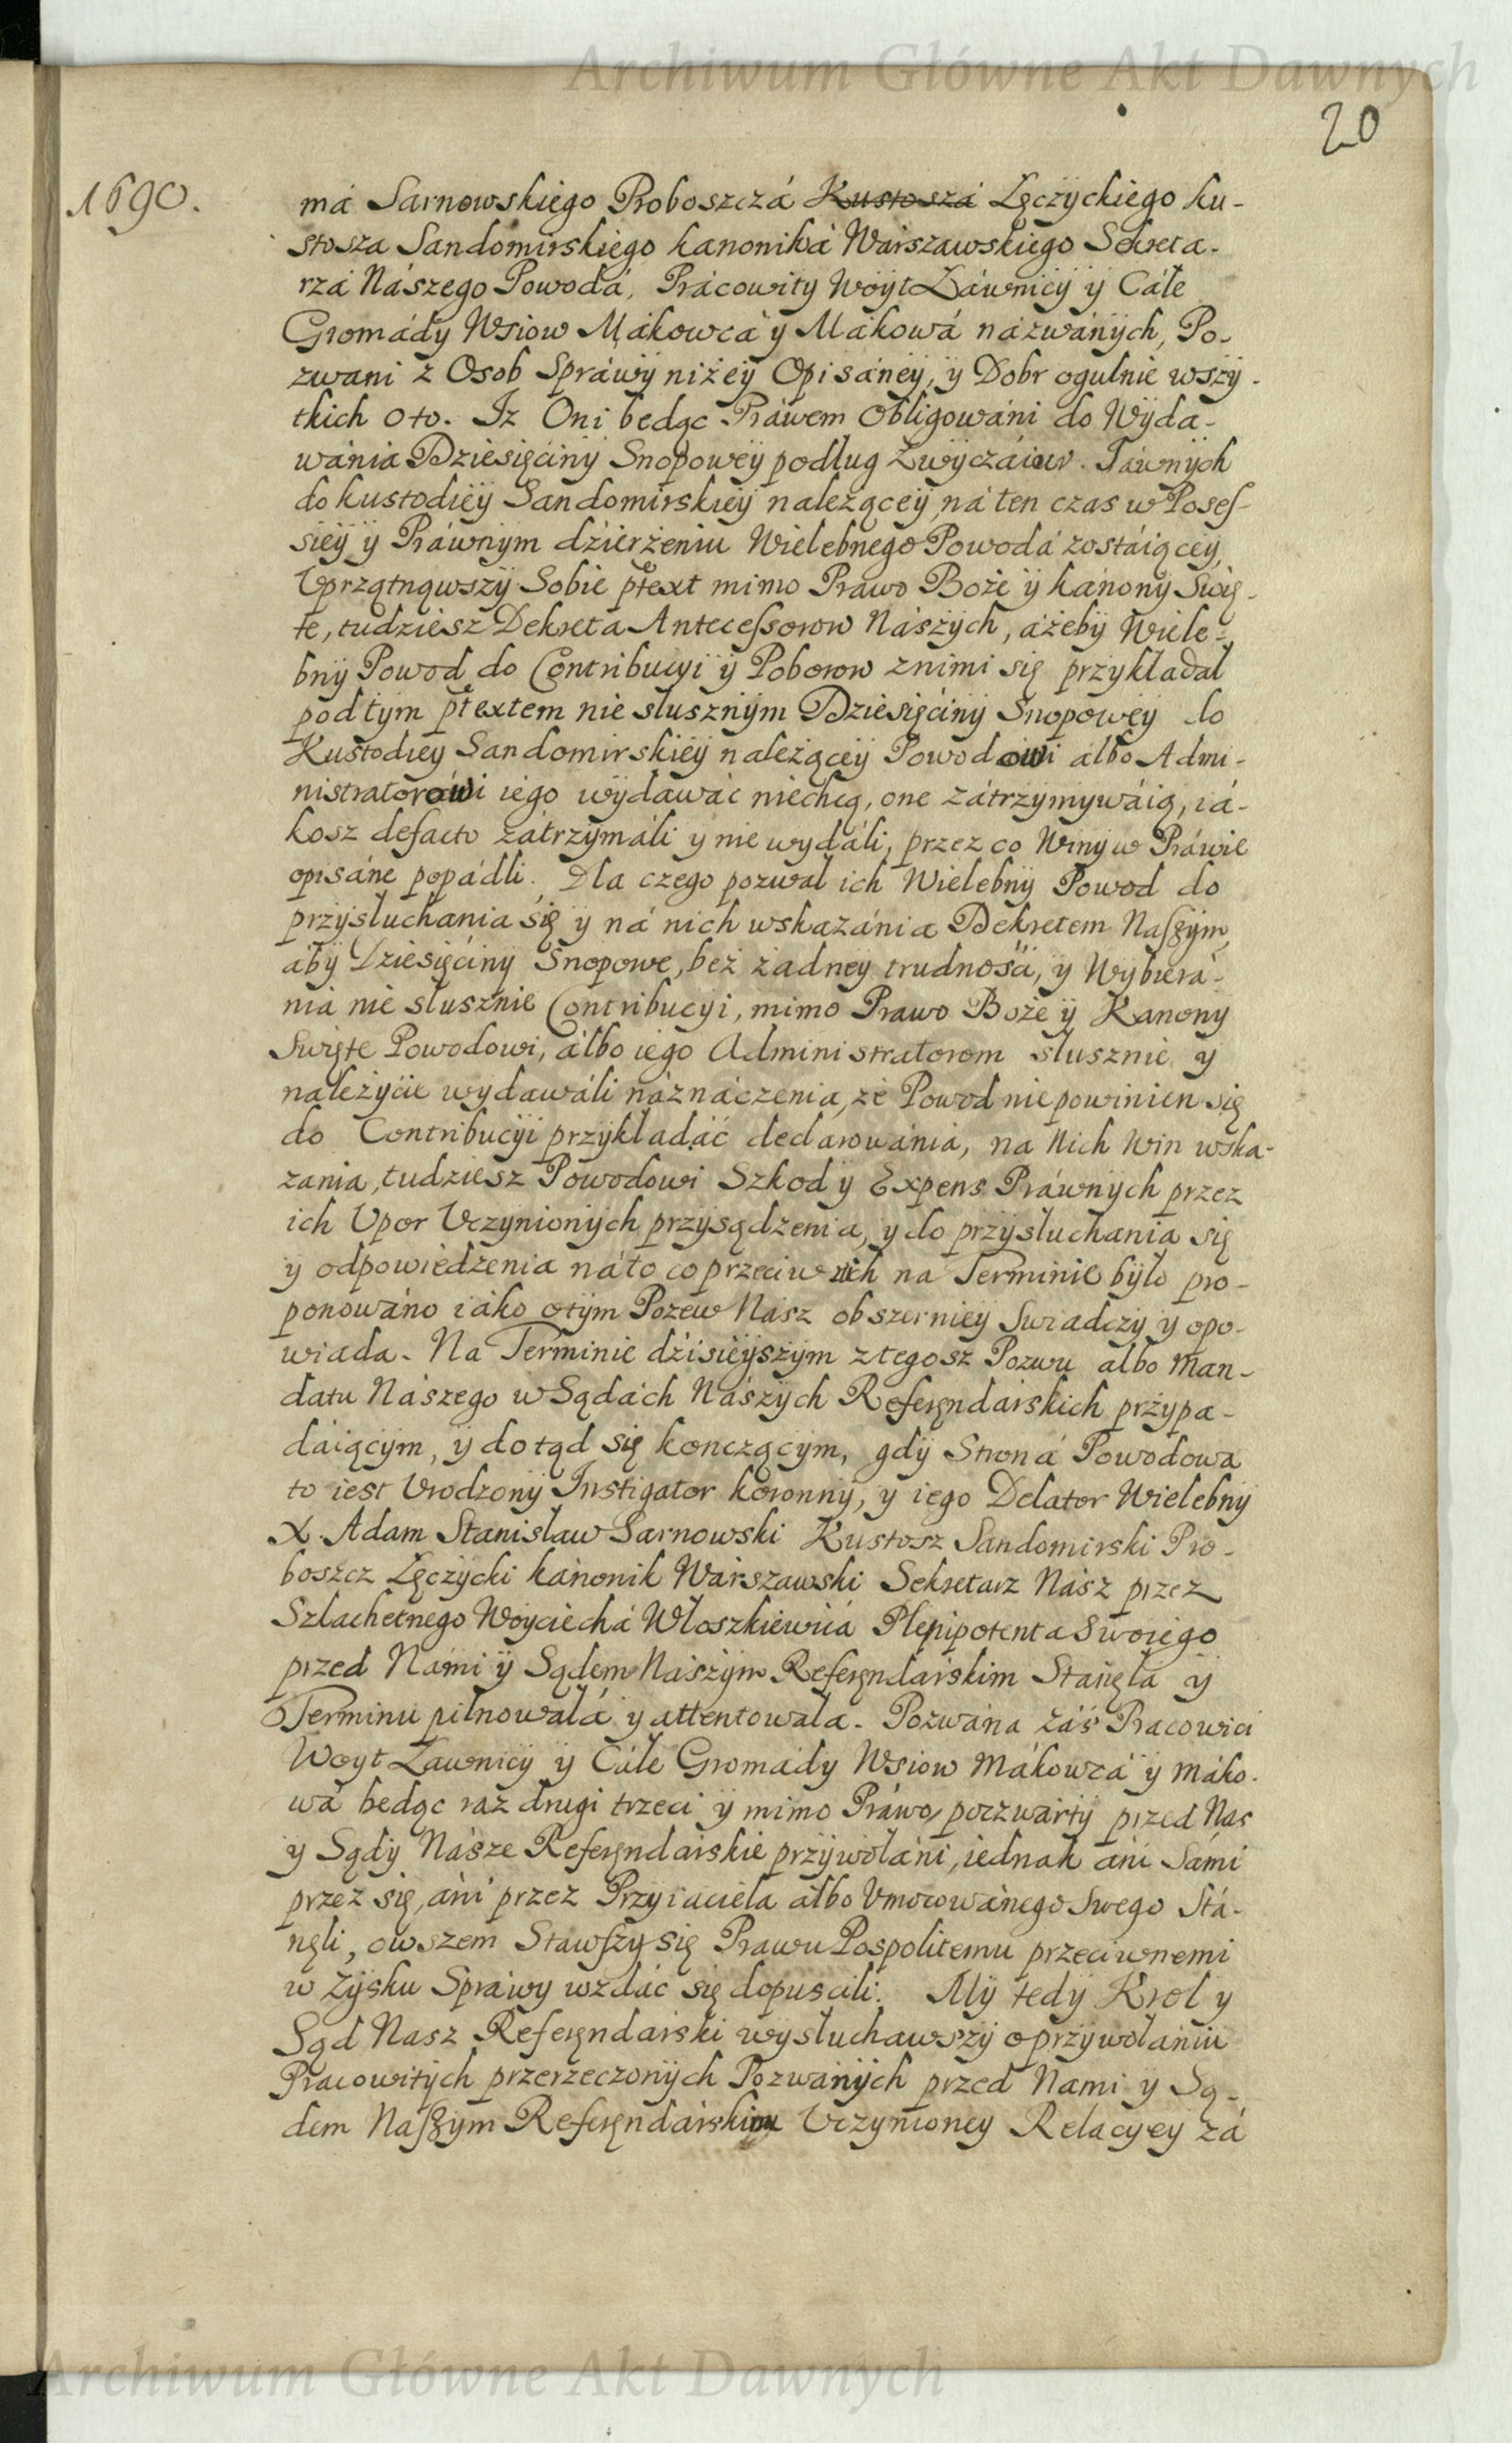 Archiwum Główne Akt Dawnych
20
1690.
má Sarnowskiego Proboszczá Kustoszá Łęczyckiego ku-
stosza Sandomirskiego kanoniká Warszawskiego Sekreta-
rzá Nászego Powodá, Prácowity Woyt Ławnicy y Cáłe
Gromády Wsiow Mákowcá y Mákowá názwánych, Po-
zwani z Osob Spráwy niżey Opisáney, y Dobr ogulnie wszy-
tkich oto. Iz Oni bedąc Práwem obligowáni do Wyda-
wánia Dziesięciny Snopowey podług Zwyczáiuv. Dawnych
do kustodiey Sandomirskiey należącey ná ten czas w Posеſ-
siey y Práwnym dzierżeniu Wielebnego Powodá zostáiącey,
Vprzątnąwszy Sobie ptext mimo Prawo Boże y kánony Swię-
te, tudziesz Dekreta Anteceſsorow Nászych, áżeby Wiele-
bny Powod do Contribucyi y Poborow znimi się przykładał
pod tym ptextem nie słusznym Dziesięciny Snopowey do
Kustodiey Sandomirskiey należącey Powodowi albo Admi-
nistratorowi iego wydawáć niechcą, one zátrzymywáią, iá-
kosz defacto zátrzymáli y nie wydáli, przez co Winy w Práwie
opisáne popádli. Dla czego pozwał ich Wielebny Powod do
przysłuchania się y ná nich wskazánia Dekretem Naſzym,
áby Dziesięciny Snopowe, bez żadney trudnośći, y Wybierá-
nia nie słusznie Contribucyi, mimo Prawo Boże y Kanony
Swięte Powodowi, álbo iego Administratorom słusznie y
należycie wydawáli náznáczenia, że Powod nie powinien się
do Contribucyi przykładáć declarowánia, na Nich Win wska-
zania, tudziesz Powodowi Szkod y Expens Práwnych przez
ich Vpor Vczynionych przysądzenia, y do przysłuchania się
y odpowiedzenia ná to co przeciw nich na Terminie było pro-
ponowáno iáko otym Pozew Nász obszerniey Swiadczy y opo-
wiada. Na Terminie dzisieyszym z tegosz Pozwu albo Man-
datu Nászego w Sądách Nászych Referęndarskich przypa-
daiącym, y dotąd się konczącym, gdy Stroná Powodowa
to iest Vrodzony Instigator koronny, y iego Delator Wielebny
X. Adam Stanisław Sarnowski Kustosz Sandomirski Pro-
boszcz Łęczycki kánonik Warszawski Sekretarz Nász przez
Szlachetnego Woyciechá Włoszkiewiczá Plenipotenta Swoiego
przed Námi y Sądem Nászym Referęndarskim Stánęła y
Terminu pilnowałá y attentowała. Pozwána záś Pracowici
Woyt Ławnicy y Cáłe Gromády Wsiow Mákowcá y Máko-
wá bedąc raz drugi trzeci y mimo Práwo, poczwarty przed Nas
y Sądy Násze Referęndarskie przywołáni, iednak áni Sámi
przez się, áni przez Przyiaciela albo Vmocowánego Swego Stá-
nęli, owszem Stawſzy się Prawu Pospolitemu przeciwnemi
w Zysku Spráwy wzdáć się dopuscili. My tedy Krol y
Sąd Nasz Referęndarski wysłuchawszy o przywołaniu
Pracowitych przerzeczonych Pozwánych przed Nami y Są-
dem Naſzym Referęndarskim Vczynioney Relacyey zá
Archiwum Główne Akt Dawnych